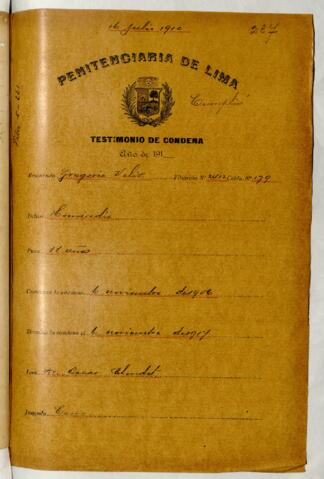 16 Julio 1910 267
PENITENCIARIA DE LIMA
Cumplió
TESTIMONIO DE CONDENA
Año de 191
Rematado Gregorio Filiación Nº Celda Nº 179
Delito Homicidio
Pena 11 años
Comienza la condena 6 noviembre de 1906
Termina la condena el 6 noviembre de 1917
Juez Dr.
Juzgado